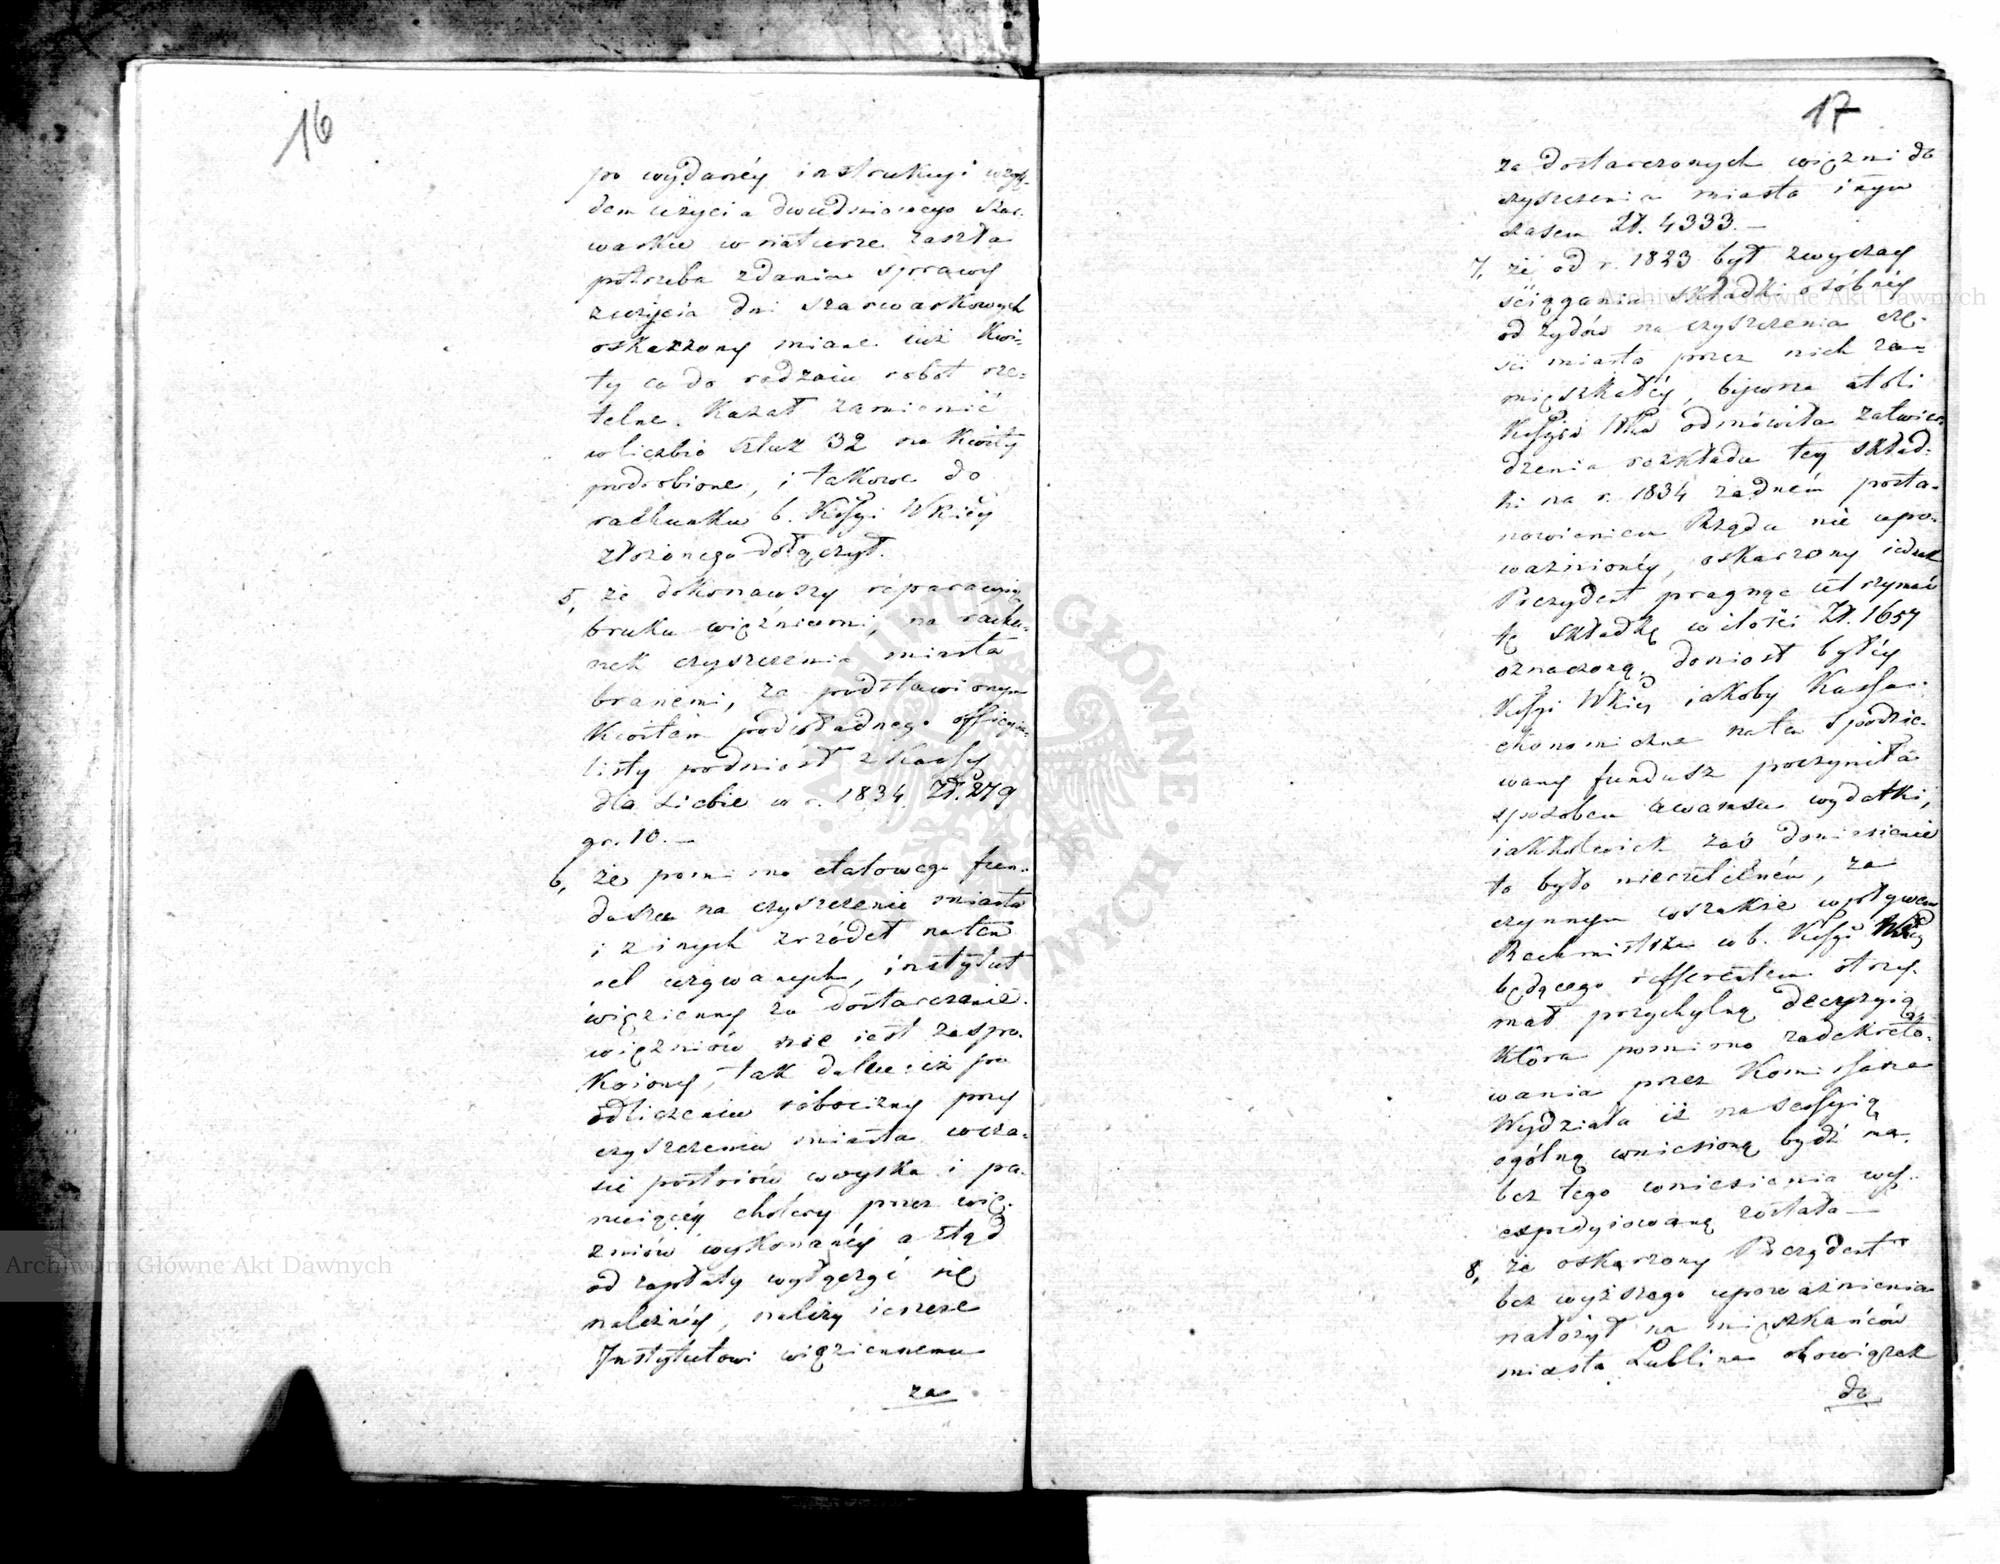 16
po wydanéy instrukcyi wzglę-
dem użycia dwudniowego szar-
warku w naturze zaszła
potrzeba zdania sprawy
z użycia dni szarwarkowych
oskarżony miane już Kwi-
ty co do rodzaiu robot rze-
telne. Kazał zamienić
w liczbie sztuk 32 na Kwity
podrobione, i takowe do
rachunku b. Kossyi Wkiéy
złożonego dołączył.
5, że dokonawszy reparacyią
bruku więźniami, na rachu-
nek czyszczenia miasta
branemi, za podstawionym
Kwitem podwładnego officyia-
listy podniósł z Kassy
dla siebie w r. 1834 Zł. 279
gr. 10. —
6, że pomimo etatowego fun-
duszu na czyszczenie miasta
i z innych zrzódeł na ten
cel używanych, instytut
więzienny za dostarczanie
więzniów nie iest zaspo-
Koiony, tak dalece iż po
odliczeniu robocizny przy
czyszczeniu miasta w cza-
sie postoiów woyska i pa-
nuiącéy cholery przez wię-
zniów wykonanéy a ztąd
od zapłaty wyłączyć się
należnéy, należy ieszcze
Instytutowi więziennemu
za
17
za dostarczonych więzni do
czyszczenia miasta inym
czasem Zł. 4333. —
7, że od r. 1823 był zwyczay
ściągania składki osóbnéy
od żydów na czyszczenia czę-
ści miasta przez nich za-
mięszkałéy, bywsza atoli
Kossya Wka odmówiła zatwier-
dzenia rozkładu tey skład-
ki na r. 1834 żadném posta-
nowieniem Rządu nie upo-
ważnionéy, oskarzony iednak
Prezydent pragnąc utrzymać
tę składkę w ilości Zł. 1657
oznaczoną, doniosł byłéy
Kossyi Wkiey iakoby Kassa
ekonomiczna na ten spodzie-
wany fundusz poczyniła
sposobem awansu wydatki,
iakkolwiek zaś doniesienie
to było nierzetelném, za
czynnym wszakże wpływem
Rachmistrza w b. Kossyi Wkiey
będącego refferentem otrzy-
mał przychylną decyzyią
która pomimo zadekreto-
wania przez Kommissarza
Wydziału iż na sessyią
ogólną wniesioną bydź ma,
bez tego wniesienia wy-
expedyiowaną została —
8, że oskarzony Prezydent
bez wyższego upoważnienia
nałożył na mięszkańców
miasta Lublina obowiązek
do
Archiwum Główne Akt Dawnych
Archiwum Główne Akt Dawnych
ARCHIWUM GŁÓWNE AKT DAWNYCH